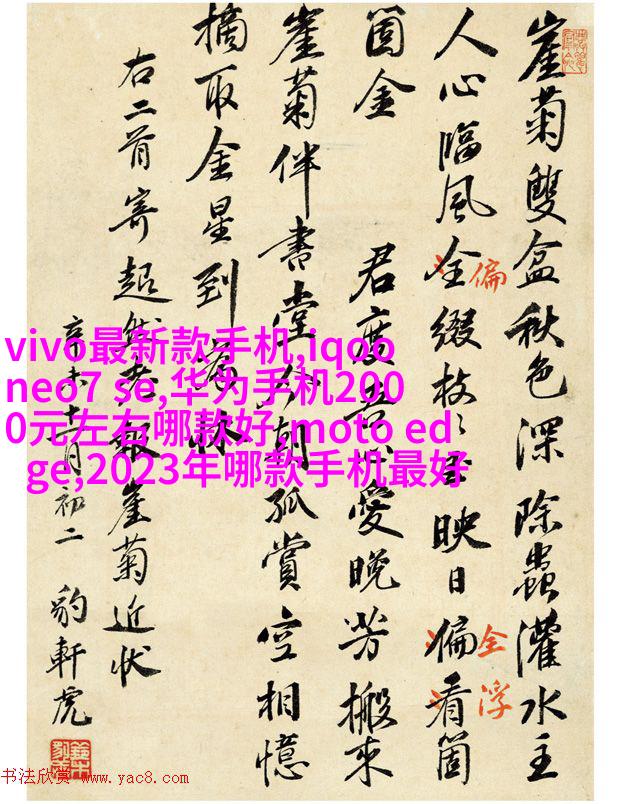 崖菊雙盆秋色深除蟲灌水主
人心臨風全綴枝映日偏看箇
偏
全
浮
箇金
君度愛晚芳搬來
崖菊伴書堂朝孤賞空相憶
摘取金星到
右二首寄超然老報崖菊近狀
辛未十月初二
豹軒虎
vivo最新款手机,iqoo
neo7 se,华为手机200
0元左右哪款好,moto ed
ge,2023年哪款手机最好
书法欣赏 www.yac8.com